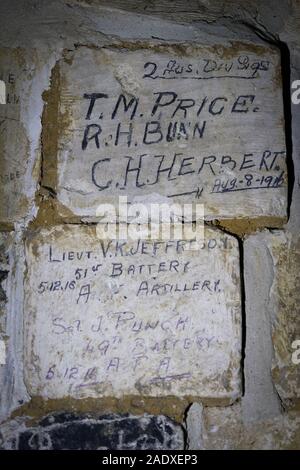 2 Aus. Div Sigs
T.M. PRICE.
R.H BUNN
C.H. HERBERT.
Aug-8-1916
LIEUT. V.K. JEFFERSON.
51st BATTERY
5.12.16 A. ARTILLERY.
Sgt J. PUNCH.
49th BATTERY
5.12.16 A.F.A.
alamy
Image ID: 2ADXEP3
www.alamy.com